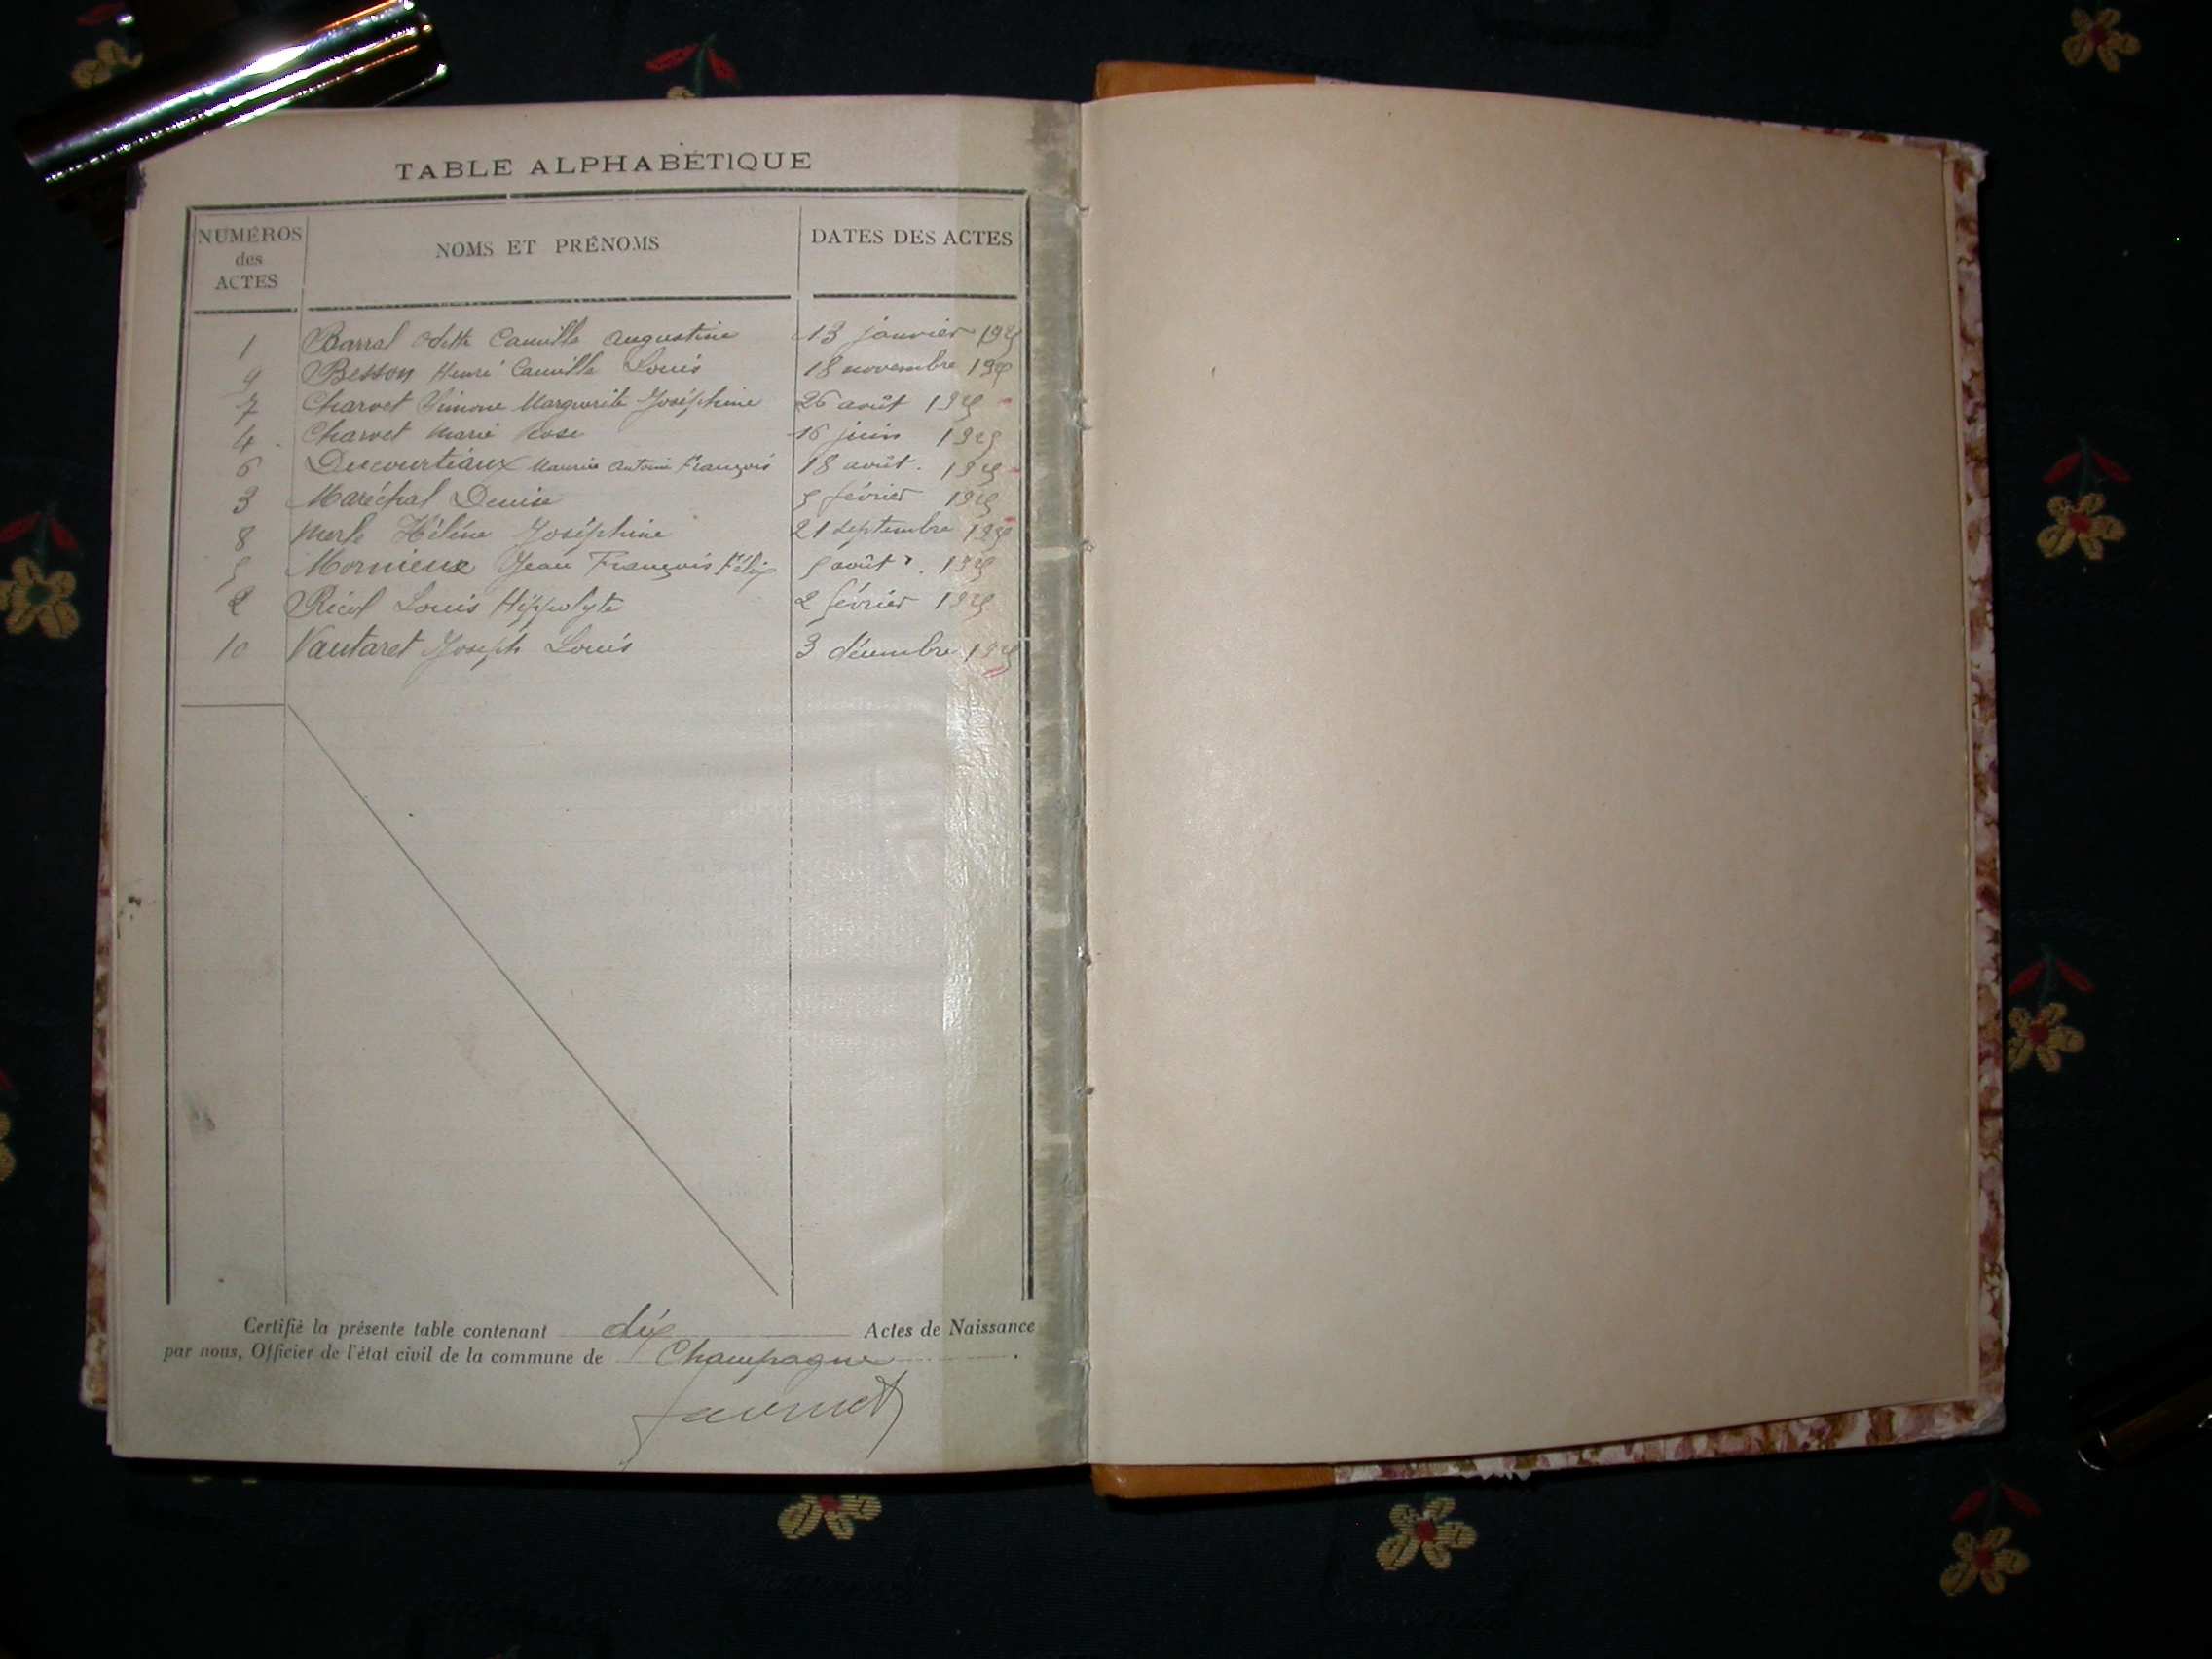 TABLE ALPHABÉTIQUE
NUMÉROS des ACTES NOMS ET PRÉNOMS DATES DES ACTES
1 Barral Odette Camille Augustine 13 janvier 1925
9 Besson Henri Camille Louis 18 novembre 1925
7 Charvet Simone Marguerite Joséphine 26 août 1925
4 Charvet Marie Rose 16 juin 1925
6 Descourtiaux Maurice Antoine François 18 août 1925
3 Maréchal Denise 5 février 1925
8 Merle Hélène Joséphine 21 septembre 1925
5 Mornieux Jean François Félix 5 août 1925
2 Ricol Louis Hippolyte 2 février 1925
10 Vautaret Joseph Louis 3 décembre 1925
Certifié la présente table contenant dix Actes de Naissance
par nous, Officier de l'état civil de la commune de Champagne